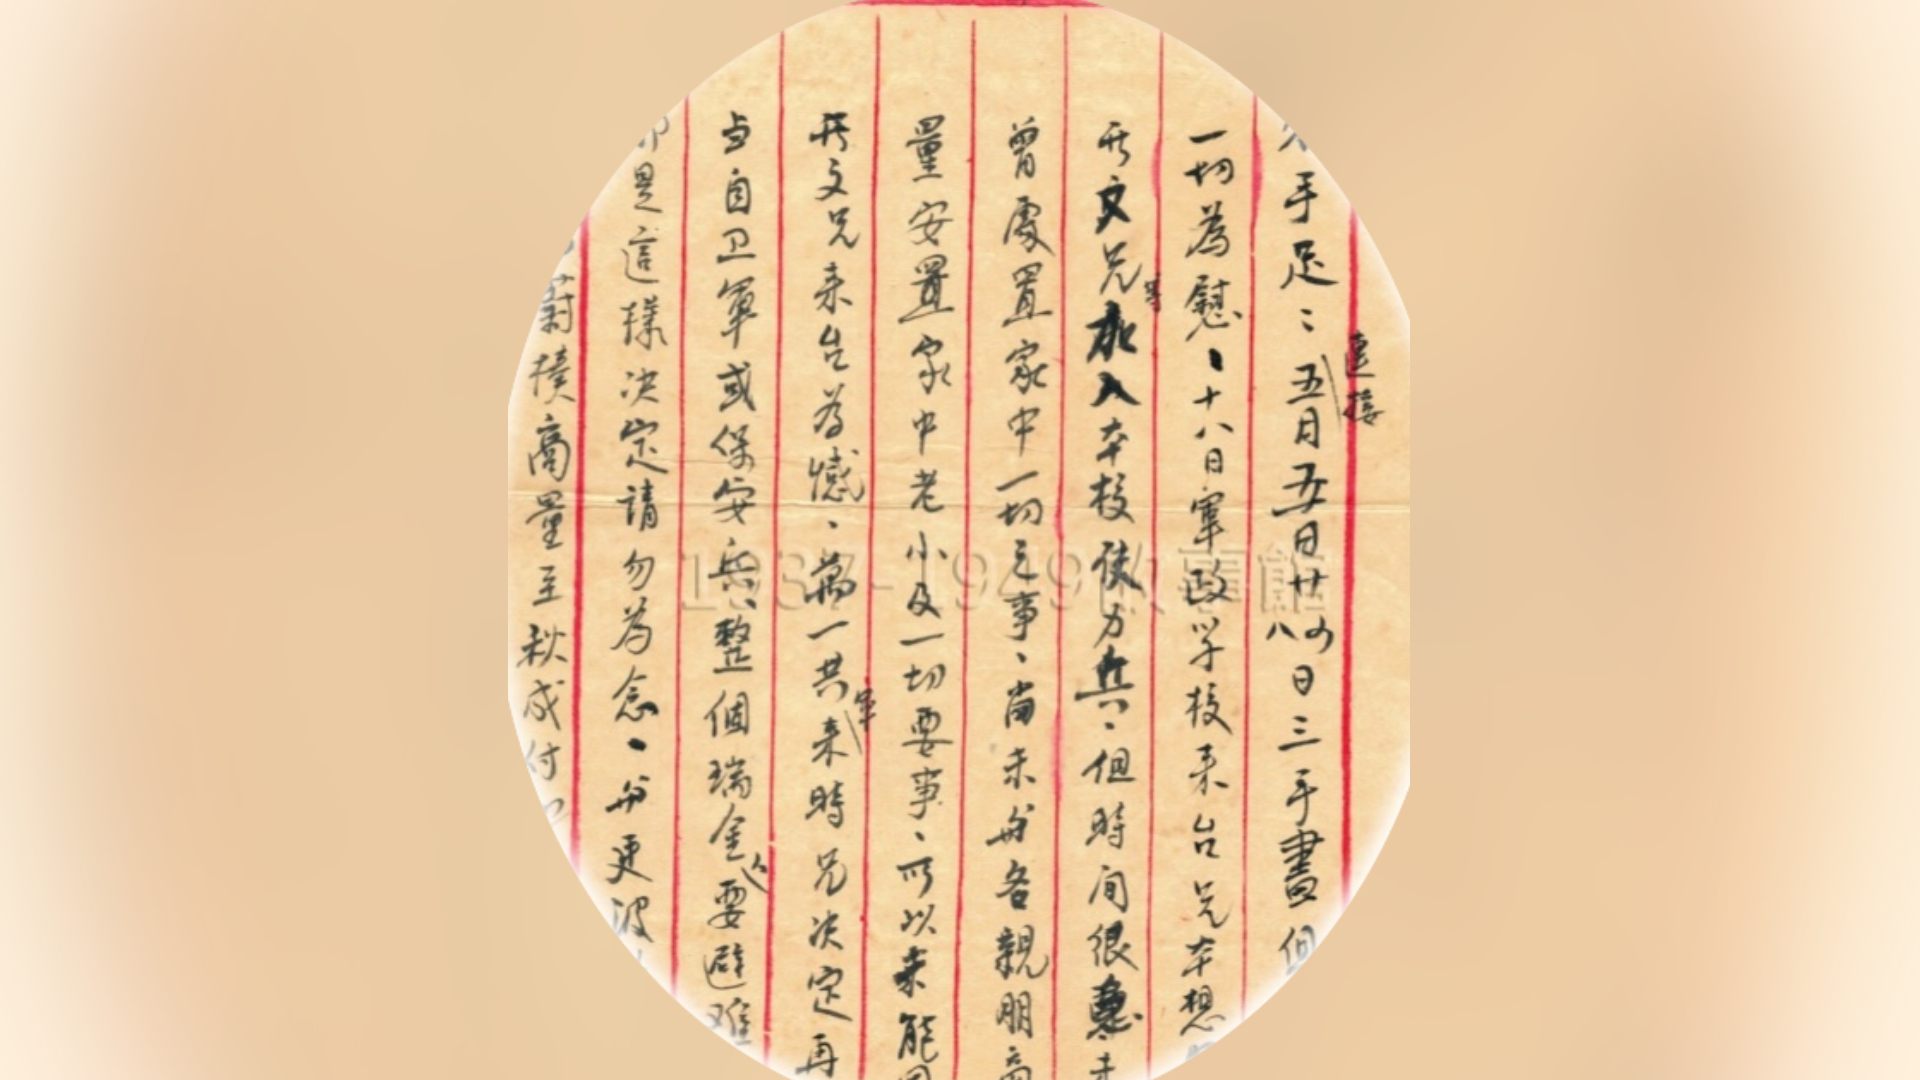 連接
手足：五月五日廿四八日三手書但
一切為慰、十八日軍政学校来台兄本想
文兄等入本校使力兵、但時间很急未
曾處置家中一切之事、尚未与各親朋商
量安置家中老小及一切要事、所以未能同
文兄来台為憾、萬一共軍来時兄决定再
与自卫軍或保安兵、整個瑞金要避难
即是這様决定請勿為念、与更没
蔚横商量至秋成付
1937-1949故事館